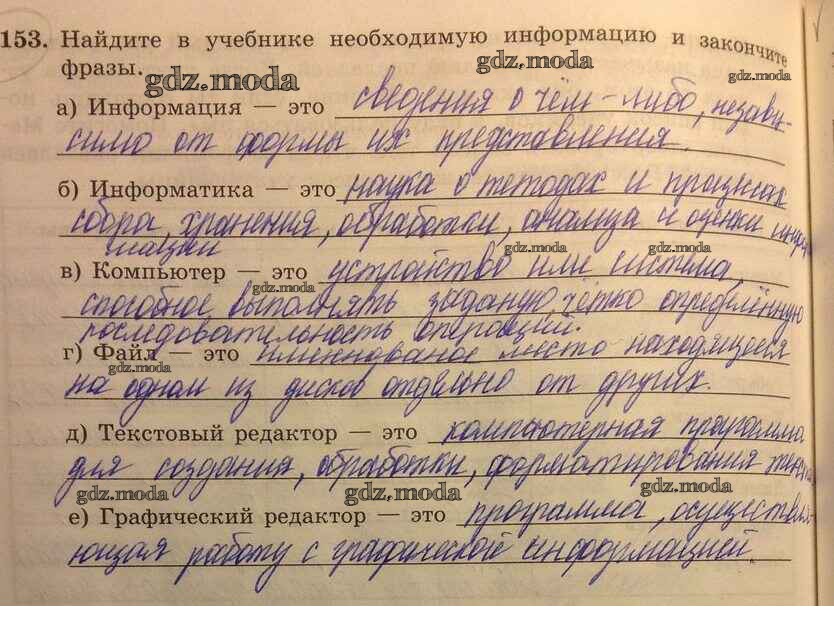 153. Найдите в учебнике необходимую информацию и закончите
фразы.
gdz.moda
gdz.moda
gdz.moda
а) Информация — это сведения о чём-либо, незави-
симо от формы их представления.
б) Информатика — это наука о методах и процессах
сбора, хранения, обработки, анализа и оценки инфор
мации
gdz.moda
gdz.moda
в) Компьютер — это устройство или система,
gdz.moda
способное выполнять заданую, чётко определённую
последовательность операций.
г) Файл — это именнованое место находящееся
gdz.moda
на одном из дисков отдельно от других.
д) Текстовый редактор — это компьютерная программа
для создания, обработки, форматирования текста
gdz.moda
gdz.moda
gdz.moda
е) Графический редактор — это программа, осуществля-
ющая работу с графической информацией.